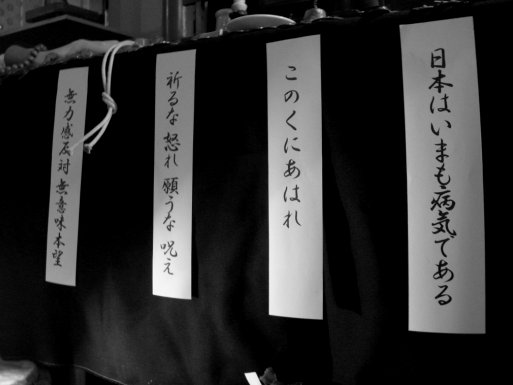 日本はいまも病気である
このくにあはれ
祈るな 怒れ 願うな 呪え
無力感反対 無意味本望